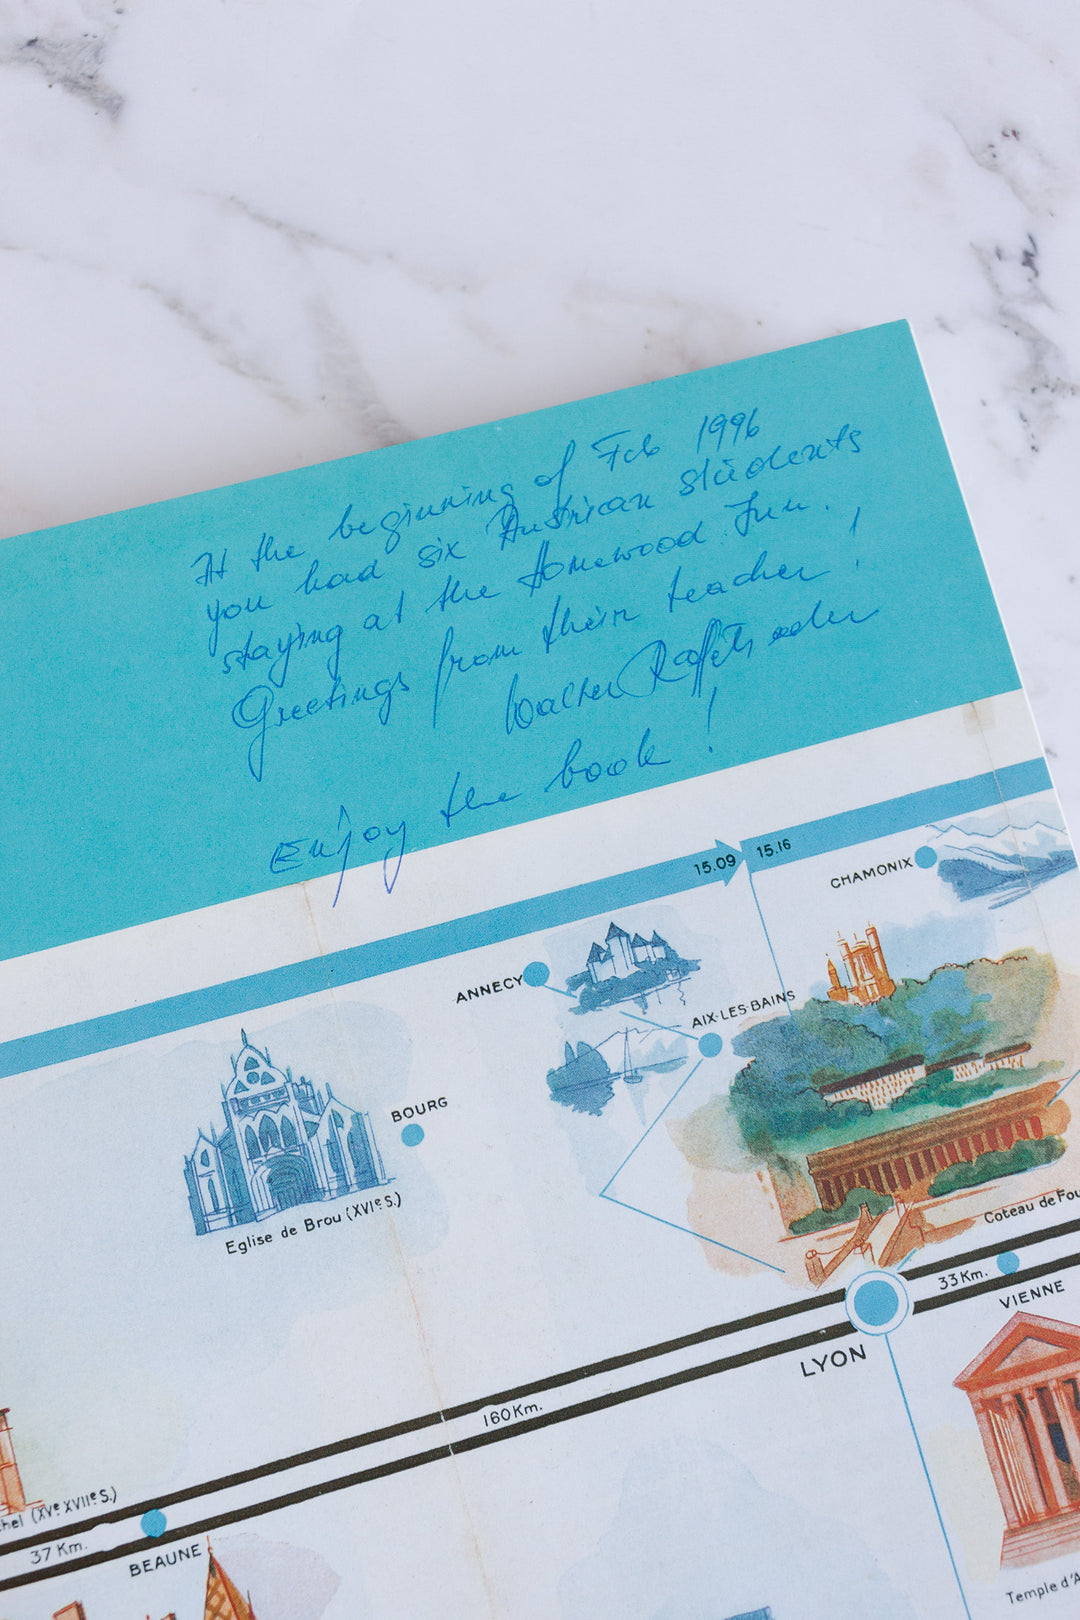 At the beginning of Feb 1996
you had six Austrian students
staying at the Homewood Inn.
Greetings from their teacher!
Walter
Enjoy the book!
15.09 15.16
CHAMONIX
ANNECY
AIX-LES-BAINS
BOURG
Eglise de Brou (XVIe S.)
Coteau de Fou
33 Km.
VIENNE
LYON
160 Km.
hel (XVe XVIIe S.)
37 Km.
BEAUNE
Temple d'A